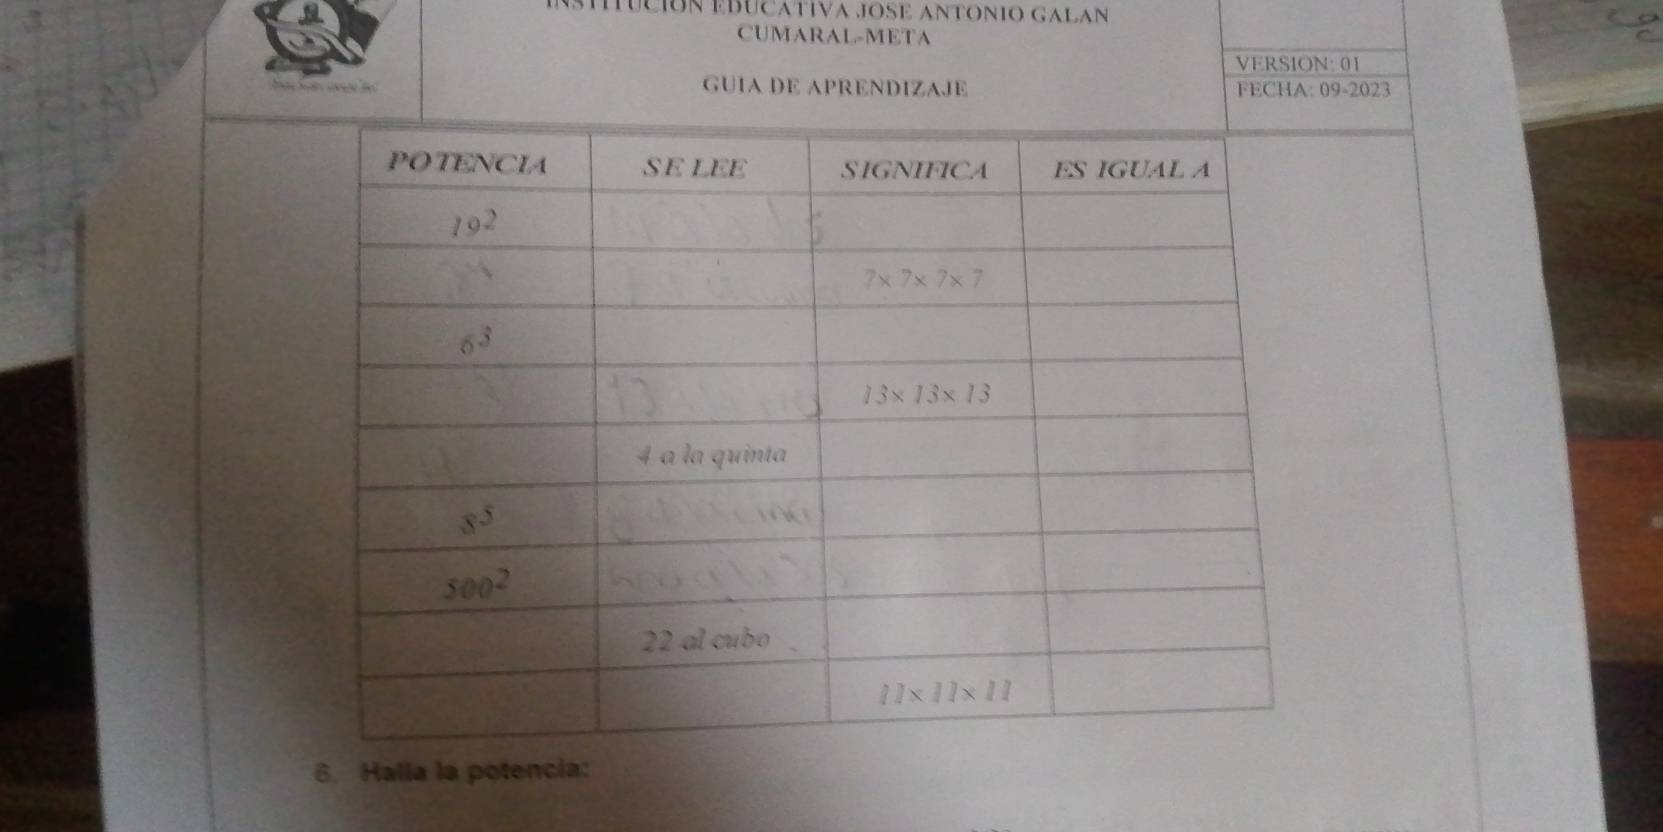 INSTITUCIÓN EDUCATIVA JOSE ANTONIO GALAN
CUMARAL-META
GUIA DE APRENDIZAJE
VERSION: 01
FECHA: 09-2023
POTENCIA SE LEE SIGNIFICA ES IGUAL A
19²
7× 7× 7× 7
6³
13× 13× 13
4 a la quinta
8⁵
500²
22 al cubo
11× 11× 11
6. Halla la potencia: